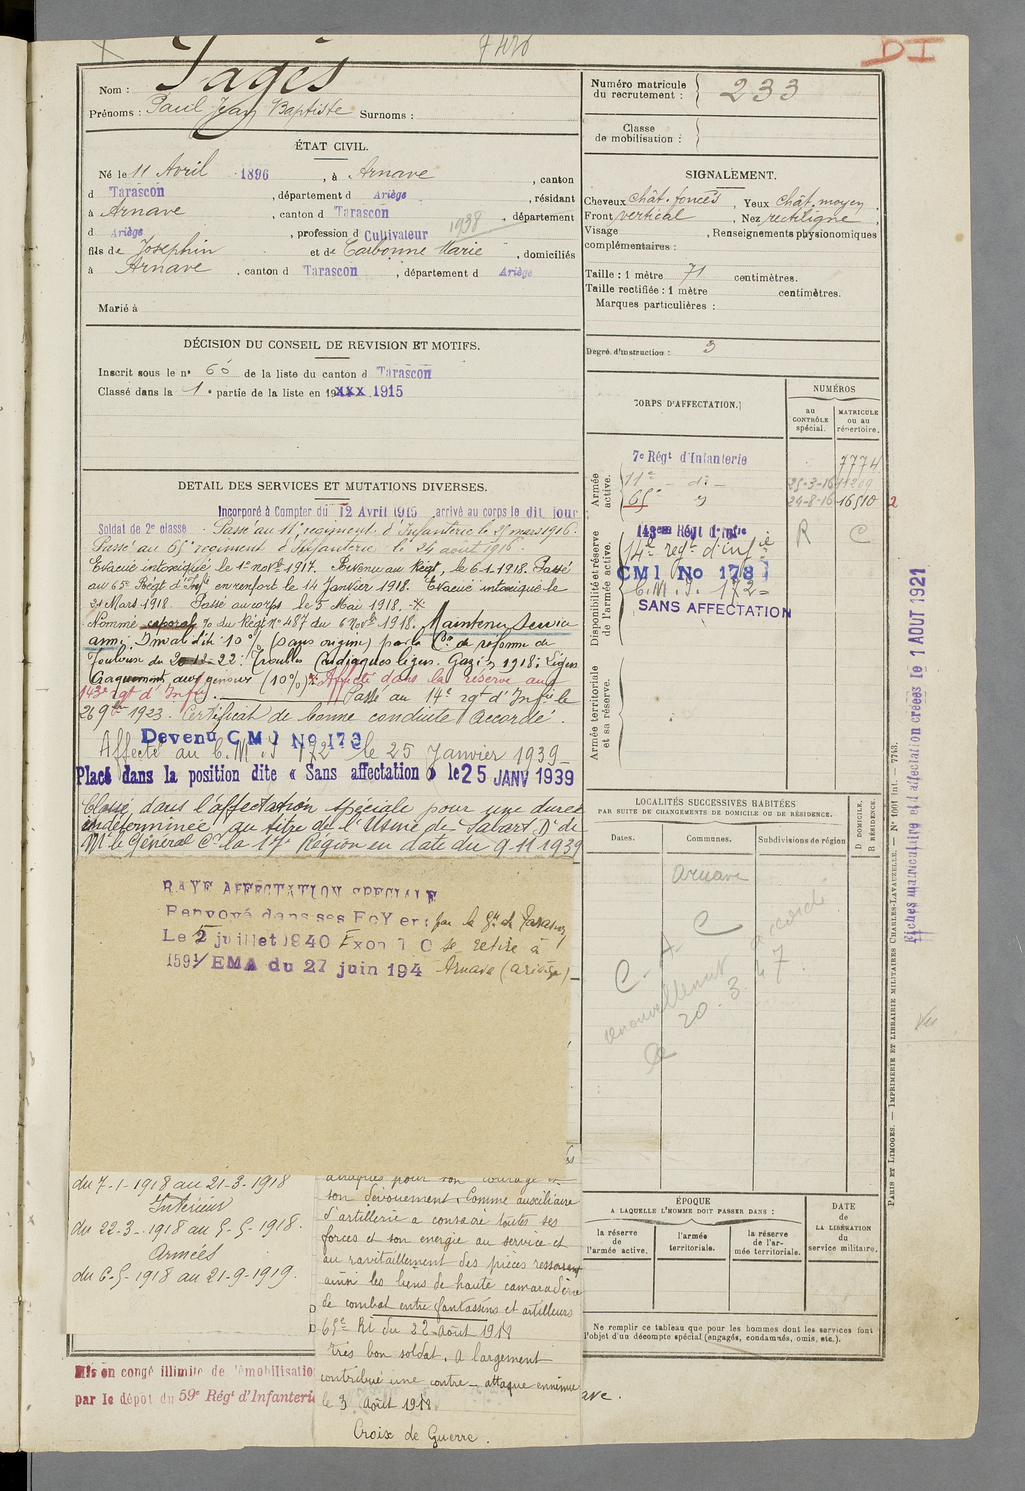 7426
DI
Nom : Pagès
Prénoms : Paul Jean Baptiste Surnoms :
Numéro matricule du recrutement : 233
Classe de mobilisation :
ÉTAT CIVIL.
Né le 11 Avril 1896, à Arnave, canton
d Tarascon, département d Ariège, résidant
à Arnave, canton d Tarascon, département
d Ariège, profession d Cultivateur 1938
fils de Josephin et de Carbonne Marie, domiciliés
à Arnave, canton d Tarascon, département d Ariège
Marié à
SIGNALEMENT.
Cheveux chât. foncés, Yeux chât. moyen.
Front vertical, Nez rectiligne.
Visage , Renseignements physionomiques
complémentaires :
Taille : 1 mètre 71 centimètres.
Taille rectifiée : 1 mètre centimètres.
Marques particulières :
Degré d'instruction : 3
DÉCISION DU CONSEIL DE REVISION ET MOTIFS.
Inscrit sous le n° 60 de la liste du canton d Tarascon
Classé dans la 1e partie de la liste en 19xxx 1915
CORPS D'AFFECTATION.
NUMÉROS
au CONTRÔLE spécial.
MATRICULE ou au répertoire.
Armée active.
7e Régt d'Infanterie 7774
11e - di - 25-3-16 11209
65e 24-8-16 16510
Disponibilité et réserve de l'armée active.
143ème Régt d'Infie R C
14e regt d'infie
CMI No 173
C.M.I. 172
SANS AFFECTATION
Armée territoriale et sa réserve.
DETAIL DES SERVICES ET MUTATIONS DIVERSES.
Incorporé à Compter du 12 Avril 1915 arrivé au corps le dit jour
Soldat de 2e classe. Passé au 11e regiment d'Infanterie le 25 mars 1916.
Passé au 65e regiment d'Infanterie le 24 août 1916.
Evacué intoxiqué le 1er novbre 1917. Revenu au Régt, le 6-1-1918. Passé
au 65e Régt d'Infie en renfort le 14 Janvier 1918. Evacué intoxiqué le
21 Mars 1918. Passé au corps le 5 Mai 1918.
Nommé caporal %o du Régt n° 487 du 6 Novbre 1918. Maintenu service
armé. Invalidité 10% (sans origine) par la Con de réforme de
Toulouse du 20-12-22 : Troubles Cardiaques légers. Gazé 1918 : Légers
Craquements aux genoux (10%) Affecté dans la réserve au
143e rgt d'Infie. Passé au 14e rgt d'Infie le
26 9bre 1923. Certificat de bonne conduite Accordé.
Devenu CMI No 173
Affecté au C.M.I 172 le 25 Janvier 1939
Placé dans la position dite « Sans affectation » le 25 JANV 1939
Classé dans l'affectation spéciale pour une durée
indéterminée au titre de l'Usine de Sabart Dn de
Mr le Général Ct la 17e Région en date du 9-11-1939
RAYE AFFECTATION SPECIALE
Renvoyé dans ses FoYers par le
Le 2 juillet 1940 se retire à
1591/EMA du 27 juin 194 Arnave (Ariège)
du 7-1-1918 au 21-3-1918
Intérieur
du 22-3-1918 au 5-5-1918.
Armées
du 6-5-1918 au 21-9-1919.
attaques pour son courage et
son dévouement. Comme auxiliaire
d'artillerie a consacré toutes ses
forces et son energie au service et
au ravitaillement des pièces resserrant
ainsi les liens de haute camaraderie
de combat entre fantassins et artilleurs
65e RI du 22 août 1918
très bon soldat. A largement
contribué une contre-attaque ennemie
le 3 août 1918
Croix de Guerre.
Mis en congé illimité de démobilisation
par le dépôt du 59e Régt d'Infanterie
ave.
LOCALITÉS SUCCESSIVES HABITÉES
PAR SUITE DE CHANGEMENTS DE DOMICILE OU DE RÉSIDENCE.
Dates.
Communes.
Subdivisions de région
D DOMICILE.
R RÉSIDENCE.
Arnave
C.A.C
renouvellement accordé
Le 20.3.47
ÉPOQUE
A LAQUELLE L'HOMME DOIT PASSER DANS :
la réserve de l'armée active.
l'armée territoriale.
la réserve de l'armée territoriale.
DATE de LA LIBÉRATION du service militaire.
Ne remplir ce tableau que pour les hommes dont les services font
l'objet d'un décompte spécial (engagés, condamnés, omis, etc.).
PARIS ET LIMOGES. — IMPRIMERIE ET LIBRAIRIE MILITAIRES CHARLES-LAVAUZELLE. — N° 1001 Int. — 7743.
Fiches matriculaire et d'affectation créées le 1 AOUT 1921
Vu